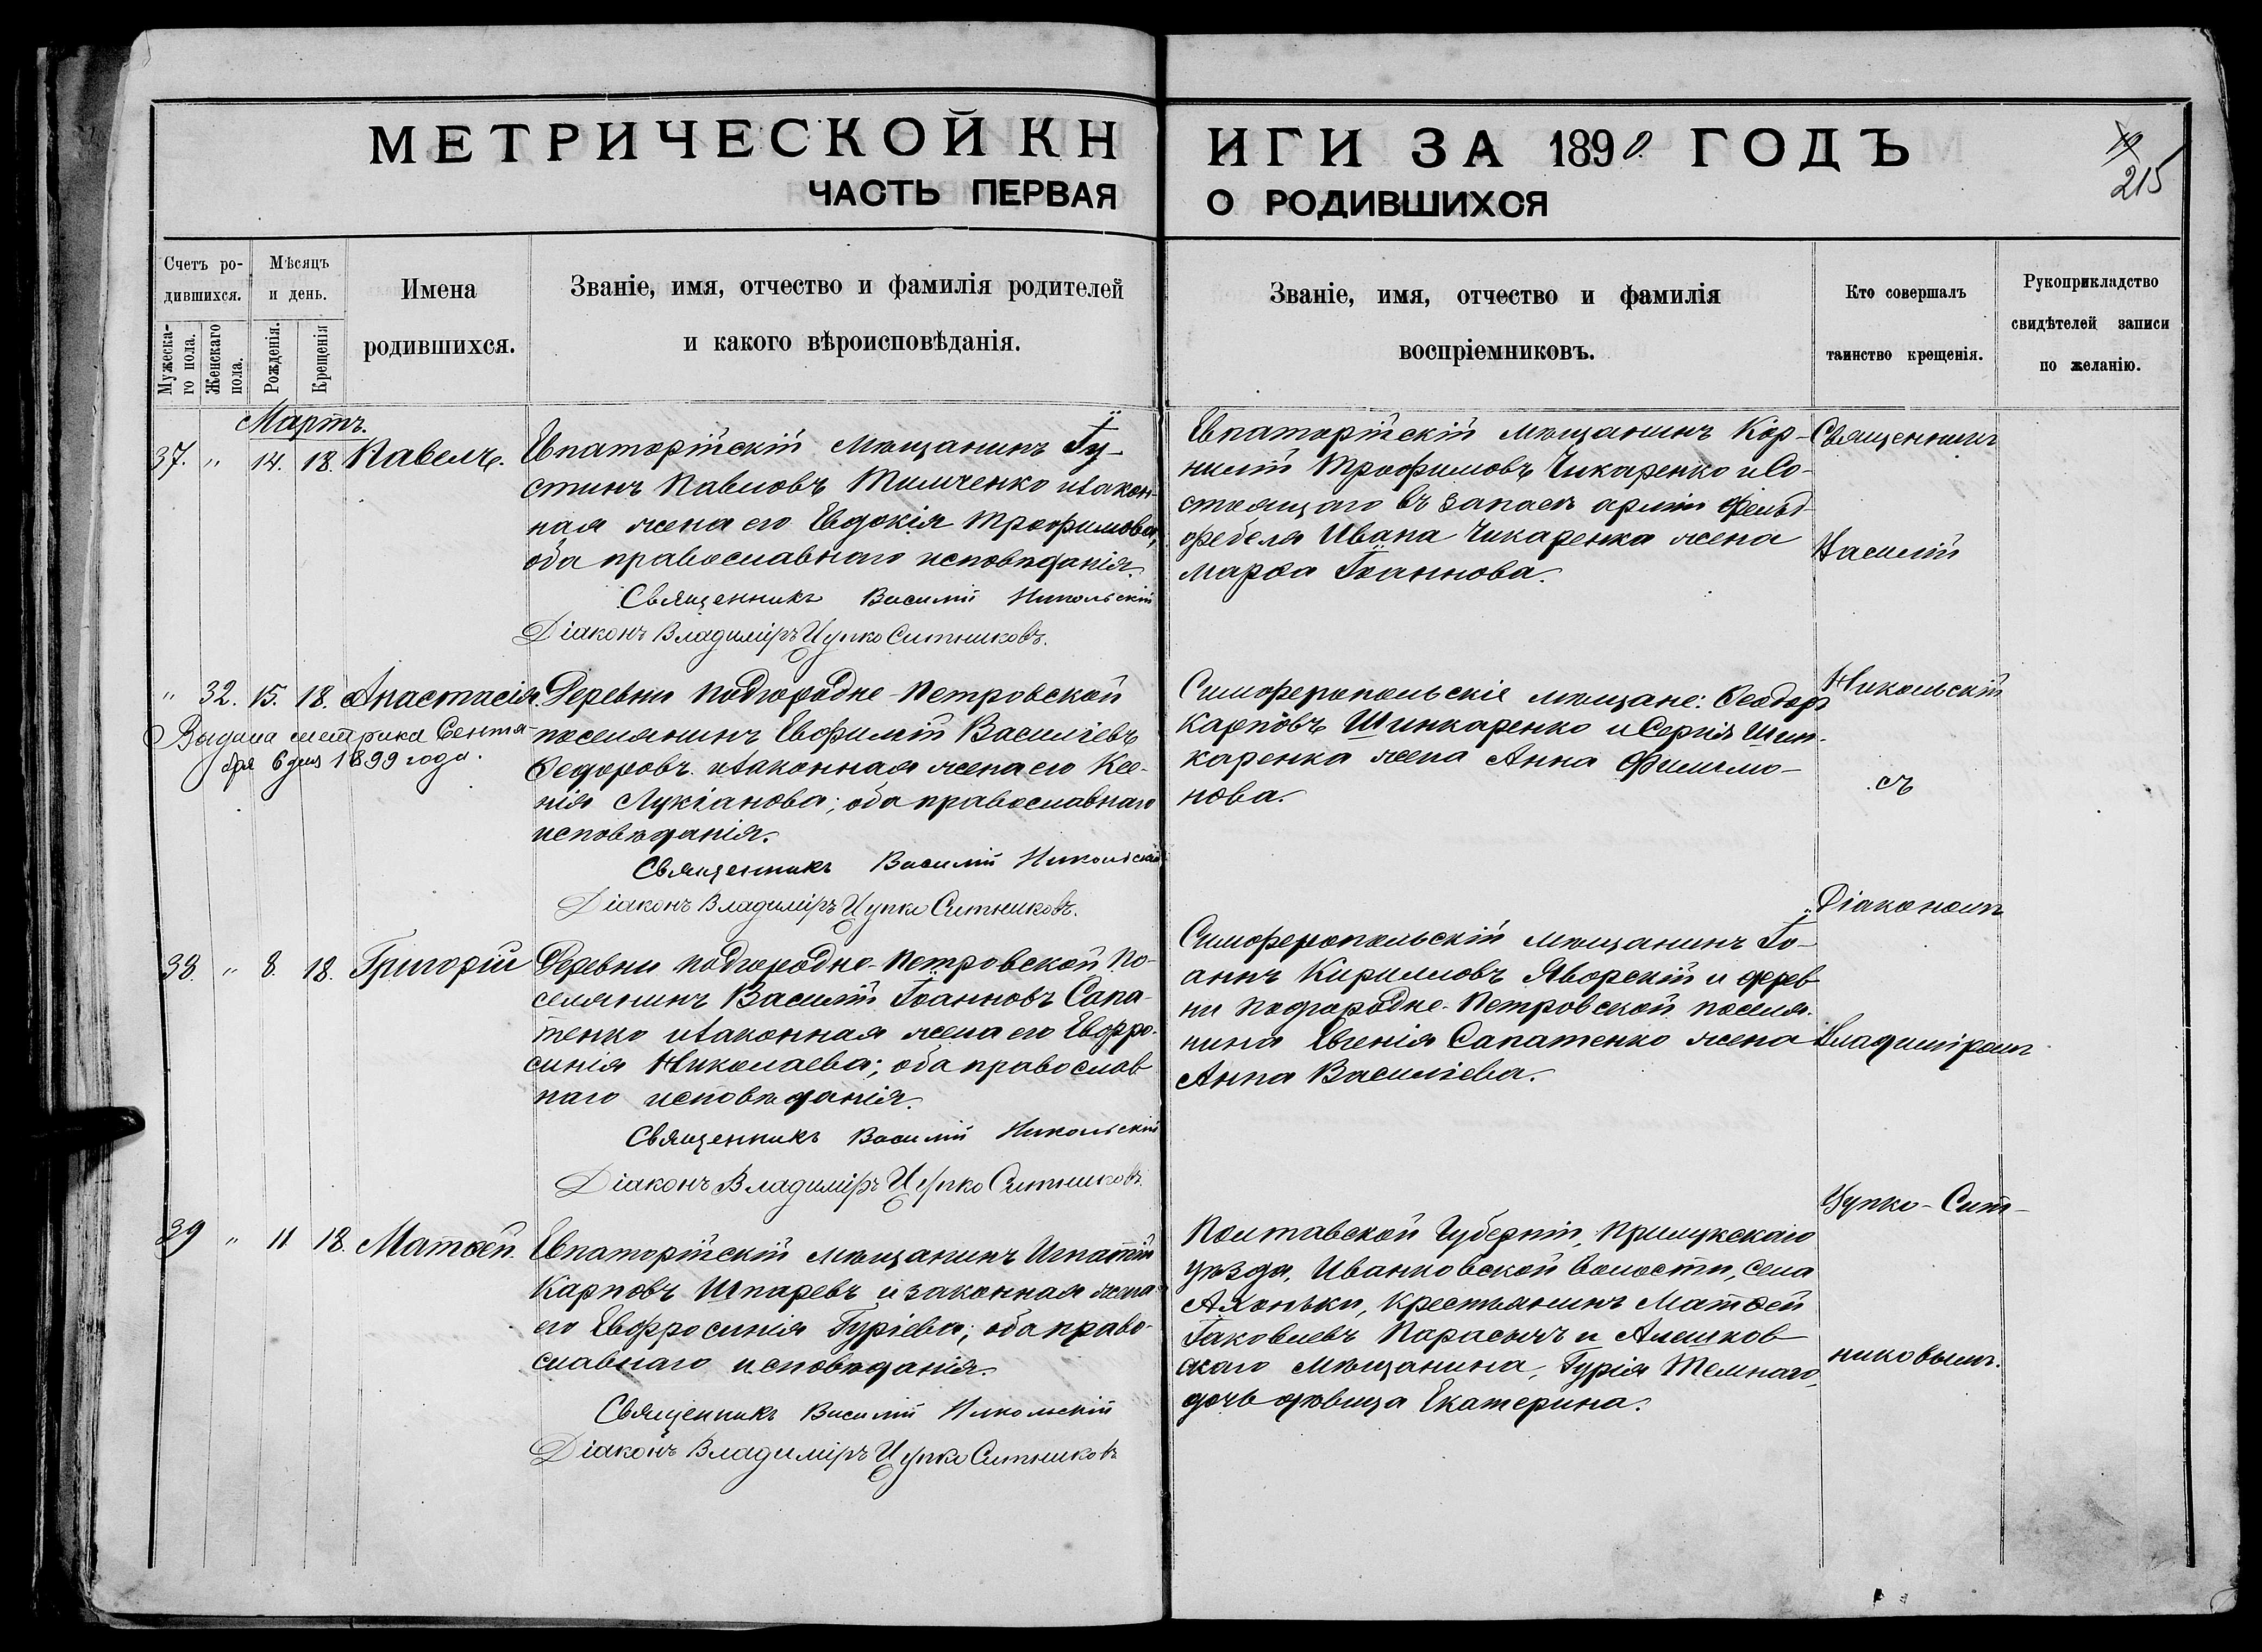 МЕТРИЧЕСКОЙ КНИГИ ЗА 1890 ГОДЪ
ЧАСТЬ ПЕРВАЯ О РОДИВШИХСЯ
19
215
Счетъ ро-
дившихся.
Мужеска-
го пола.
Женскаго
пола.
Мѣсяцъ
и день.
Рожденія.
Крещенія
Имена
родившихся.
Званіе, имя, отчество и фамилія родителей
и какого вѣроисповѣданія.
Званіе, имя, отчество и фамилія
воспріемниковъ.
Кто совершалъ
таинство крещенія.
Рукоприкладство
свидѣтелей записи
по желанію.
Мартъ.
37. " 14. 18. Павелъ.
Евпаторійскій мѣщанинъ Іу-
стинъ Павловъ Тимченко и закон-
ная жена его Евдокія Трофимова,
оба православнаго исповѣданія.
Священникъ Василій Никольскій
Діаконъ Владиміръ Цупко Ситниковъ.
Евпаторійскій мѣщанинъ Кор-
нилій Трофимовъ Чикаренко и Со-
стоящаго въ запасѣ арміи фельд-
фебеля Ивана Чикаренка жена
Марѳа Іоаннова.
" 32. 15. 18. Анастасія.
Выдана метрика Сентя-
бря 6 дня 1899 года.
Деревни Подгородне-Петровской
поселянинъ Евфимій Василіевъ
Ѳедоровъ и законная жена его Ксе-
нія Лукіанова; оба православнаго
исповѣданія.
Священникъ Василій Никольскій
Діаконъ Владиміръ Цупко Ситниковъ.
Симферопольскіе мѣщане: Ѳеодоръ
Карповъ Шинкаренко и Сергія Шин-
каренка жена Анна Филимо-
нова.
38. " 8. 18. Григорій
Деревни Подгородне-Петровской По-
селянинъ Василій Іоанновъ Сапа-
тенко и законная жена его Евфро-
синія Николаева; оба православ
наго исповѣданія.
Священникъ Василій Никольскій
Діаконъ Владиміръ Цупко Ситниковъ.
Симферопольскій мѣщанинъ Іо-
аннъ Кирилловъ Яворскій и дерев
ни Подгородне-Петровской поселя-
нина Евгенія Сапатенко жена
Анна Василіева.
39 " 11 18. Матѳей.
Евпаторійскій мѣщанинъ Игнатій
Карповъ Шпаревъ и законная жена
его Евфросинія Гуріева; оба право-
славнаго исповѣданія.
Священникъ Василій Никольскій
Діаконъ Владиміръ Цупко Ситниковъ
Полтавской Губерніи, Прилукскаго
уѣзда, Иванковской волости, села
Алоньки, Крестьянинъ Матѳей
Іаковлевъ Парасычъ и Алешков
скаго мѣщанина, Гурія Темнаго,
дочь дѣвица Екатерина.
Священникъ
Василій
Никольскій
съ
Діакономъ
Владиміромъ
Цупко-Сит-
никовымъ.